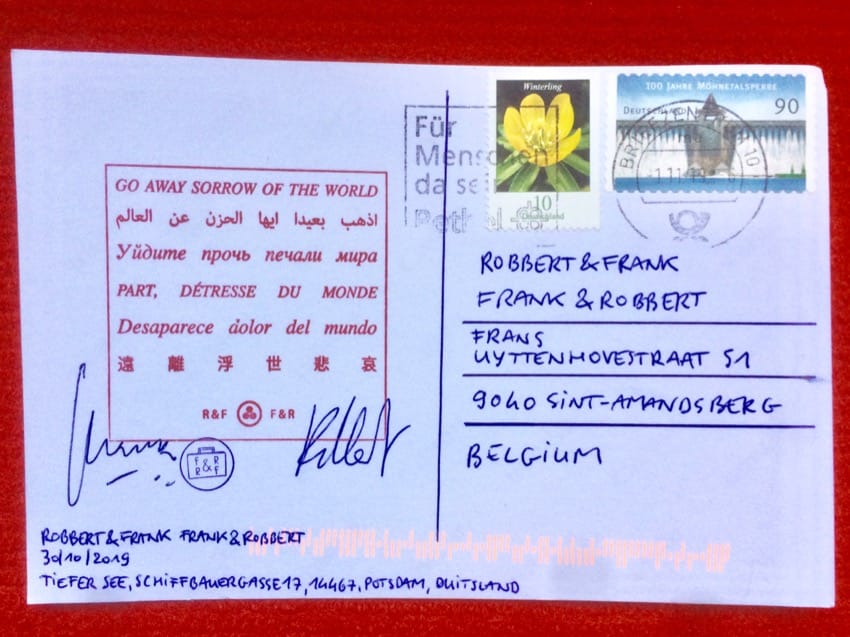 GO AWAY SORROW OF THE WORLD
اذهب بعيدا ايها الحزن عن العالم
Уйдите прочь печали мира
PART, DÉTRESSE DU MONDE
Desaparece dolor del mundo
遠離浮世悲哀
R&F F&R
F&R
R&F
ROBBERT&FRANK FRANK&ROBBERT
30/10/2019
TIEFER SEE, SCHIFFBAUERGASSE 17, 14467, POTSDAM, DUITSLAND
Für
Menschen
da sein
Bethel
Winterling
10
Deutschland
100 JAHRE MÖHNETALSPERRE
DEUTSCHLAND
90
BRIEFZENTRUM 10
ROBBERT&FRANK
FRANK&ROBBERT
FRANS
UYTTENHOVESTRAAT 51
9040 SINT-AMANDSBERG
BELGIUM